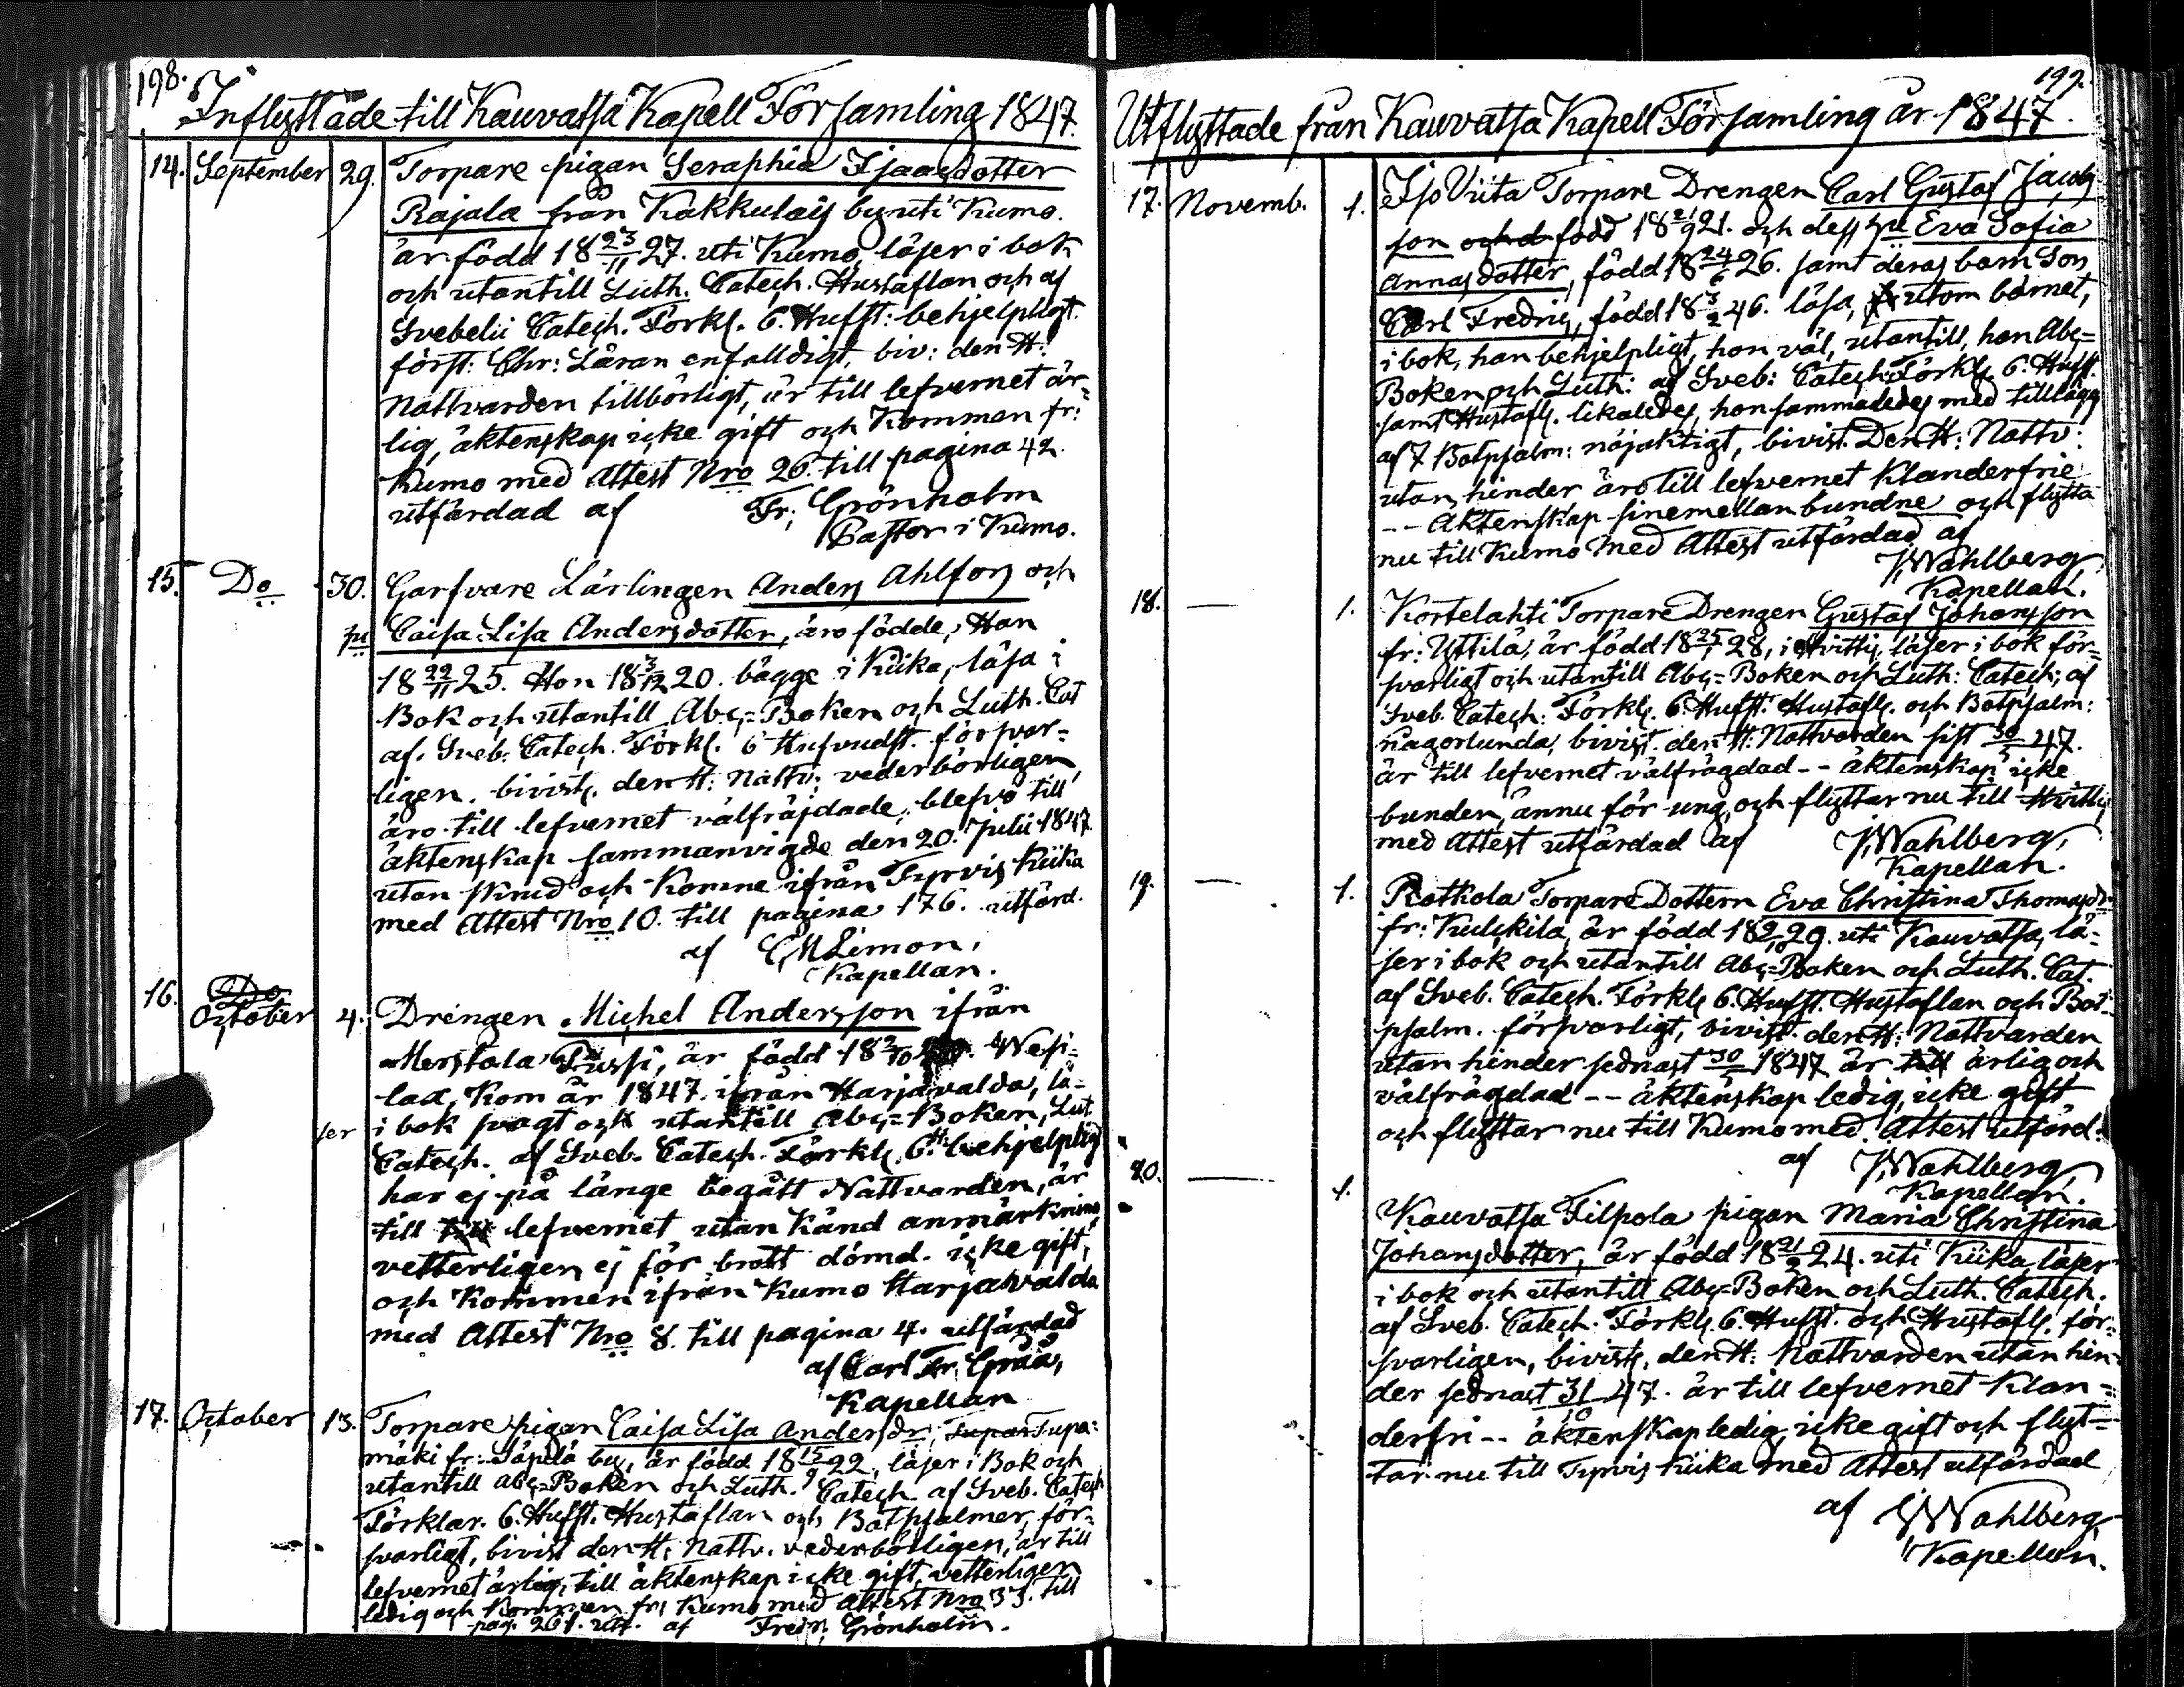 198.
Inflyttade till Kauvatsa Kapell Församling 1847.
14. September 29. Torpare pigan Seraphia Isaacsdotter
Rajala från Kakkulais by uti Kumo.
är född 18 23/11 27. uti Kumo, läser i bok
och utantill Luth. Catech. Hustaflan och af
Svebelii Catech. Förkl. 6. Hufst: behjelpligt.
först: Chr: Läran enfalldigt, biv: den H:
Nattvarden tillbörligt, är till lefvernet är-
lig, äktenskap icke gift och Kommen fr:
Kumo med Attest Nro 26. till pagina 42.
utfärdad af Fr. Grönholm
Pastor i Kumo.
15. Do 30. Garfvare Lärlingen Anders Ahlfors och
hu Caisa Lisa Andersdotter, äro födde, Han
18 22/11 25. Hon 18 3/12 20. bägge i Kiika, läsa i
Bok och utantill Abc-Boken och Luth. Cat
af. Sveb. Catech. Förkl. 6 Hufvudst. försvar-
ligen. bivist. den H: Nattv: vederbörligen,
äro till lefvernet välfräjdade, blefvo till
äktenskap sammanvigde den 20. Julii 1847.
utan skrud och Komne ifrån Tyrvis Kiika
med Attest Nro 10. till pagina 176. utfärd.
af Limon,
Kapellan.
16. Do
October 4. Drengen Michel Andersson ifrån
Merstola, är född 18 2/10 Wesi-
lax, Kom år 1847. ifrån Harjavalda, lä-
ser i bok svagt och utantill Abc-Boken, Lut
Catech. af Sveb. Catech. Förkl. 6. H: behjelpligt
har ej på länge begått Nattvarden, är
till lefvernet utan Känd anmärkning
vetterligen ej för brott dömd. icke gift,
och Kommen ifrån Kumo Harjavalda
med Attest Nro 8. till pagina 4. utfärdad
af Carl Fr. Gråå,
Kapellan
17. October 13. Torpare pigan Caisa Lisa Andersdr, Tupa-
mäki fr: Säpilä by, är född 18 15/9 22, läser i Bok och
utantill Abc-Boken och Luth. Catech. af Sveb. Catech
Förklar. 6. Hufst. Hustaflan och Botpsalmer, för-
svarligt, bivist den H: Nattv. vederbörligen, är till
lefvernet ärlig, till äktenskap icke gift, vetterligen
ledig och Kommen fr: Kumo med Attest Nro 33. till
pag. 201. utf. af Fredr. Grönholm.
199.
Utflyttade från Kauvatsa Kapell Församling år 1847.
17. Novemb. 1. Iso Viita Torpare Drengen Carl Gustaf Jacobs
son född 18 21/9 21. och dess hu Eva Sofia
Annasdotter, född 18 24/6 26. samt deras barn Son
Carl Fredric, född 18 3/2 46. läsa, utom barnet,
i bok, han behjelpligt, hon väl, utantill, han Abc-
Boken och Luth: af Sveb: Catech: Förkl. 6. Hufst.
samt Hustafl. likaledes, hon sammaledes med tillägg
af 7 Botpsalm: nöjaktigt, bivist. Den H: Nattv:
utan hinder äro till lefvernet Klanderfrie
-- Äktenskap sinemellan bundne och flytta
nu till Kumo med Attest utfärdad af
J. Wahlberg
Kapellan.
18. — 1. Kortelahti Torpare Drengen Gustaf Johansson
fr: Yttilä, är född 18 25/1 28, i Hvittis, läser i bok för-
svarligt och utantill Abc-Boken och Luth: Catech; af
Sveb. Catech: Förkl. 6. Hufst. Hustafl. och Botpsalm:
någorlunda, bivist. den H: Nattvarden sist 30/5 47.
är till lefvernet välfrägdad -- äktenskap icke
bunden, ännu för ung, och flyttar nu till Hvittis
med Attest utfärdad af J. Wahlberg,
Kapellan.
19. — 1. Ratkola Torpare Dottern Eva Christina Thomasdr
fr: Kulckila, är född 18 2/10 29. uti Kauvatsa, lä-
ser i bok och utantill Abc-Boken och Luth. Cat.
af Sveb. Catech. Förkl 6. Hufst. Hustaflan och Bot-
psalm. försvarligt, bivist. den H: Nattvarden
utan hinder sednast 30/5 1847 är till ärlig och
välfrägdad -- äktenskap ledig, icke gift
och flyttar nu till Kumo med Attest utfärd.
af J. Wahlberg
Kapellan.
20. — 1.
Kauvatsa Filpola pigan Maria Christina
Johansdotter, är född 18 21/9 24. uti Kiika, läser
i bok och utantill Abc-Boken och Luth. Catech.
af Sveb. Catech. Förkl. 6. Hufst. och Hustafl. för-
svarligen, bivist. den H: Nattvarden utan hin-
der sednast 31 47. är till lefvernet Klan-
derfri -- äktenskap ledig, icke gift och flyt-
tar nu till Tyrvis Kiika med Attest utfärdad
af J. Wahlberg,
Kapellan.